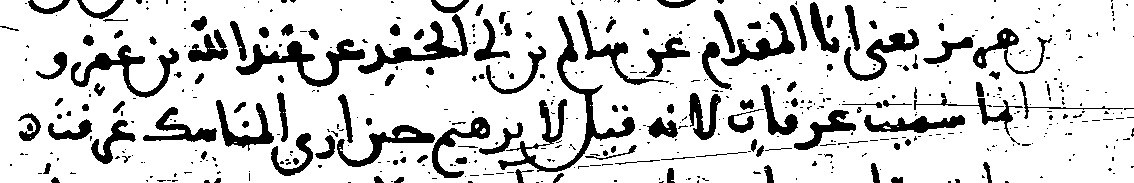 بن هرمز يعني ابا المقدام عن سالم بن ابي الجعد عن عبد الله بن عمرو
انما سميت عرفات لانه قيل لابرهيم حين اري المناسك عرفت ه